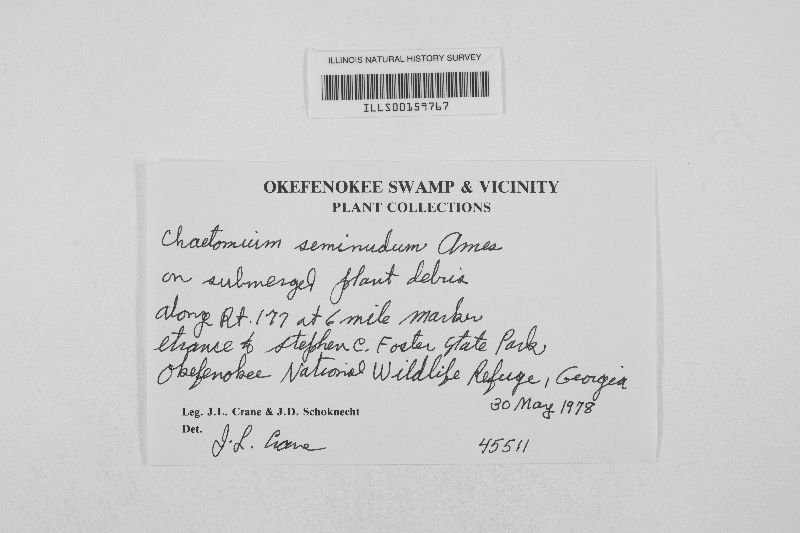 ILLINOIS NATURAL HISTORY SURVEY
ILLS00159767
OKEFENOKEE SWAMP & VICINITY
PLANT COLLECTIONS
Chaetomium seminudum Ames
on submerged plant debris
along Rt. 177 at 6 mile marker
etrance to Stephen C. Foster State Park,
Okefenokee National Wildlife Refuge, Georgia
30 May 1978
Leg. J.L. Crane & J.D. Schoknecht
Det. J.L. Crane
45511